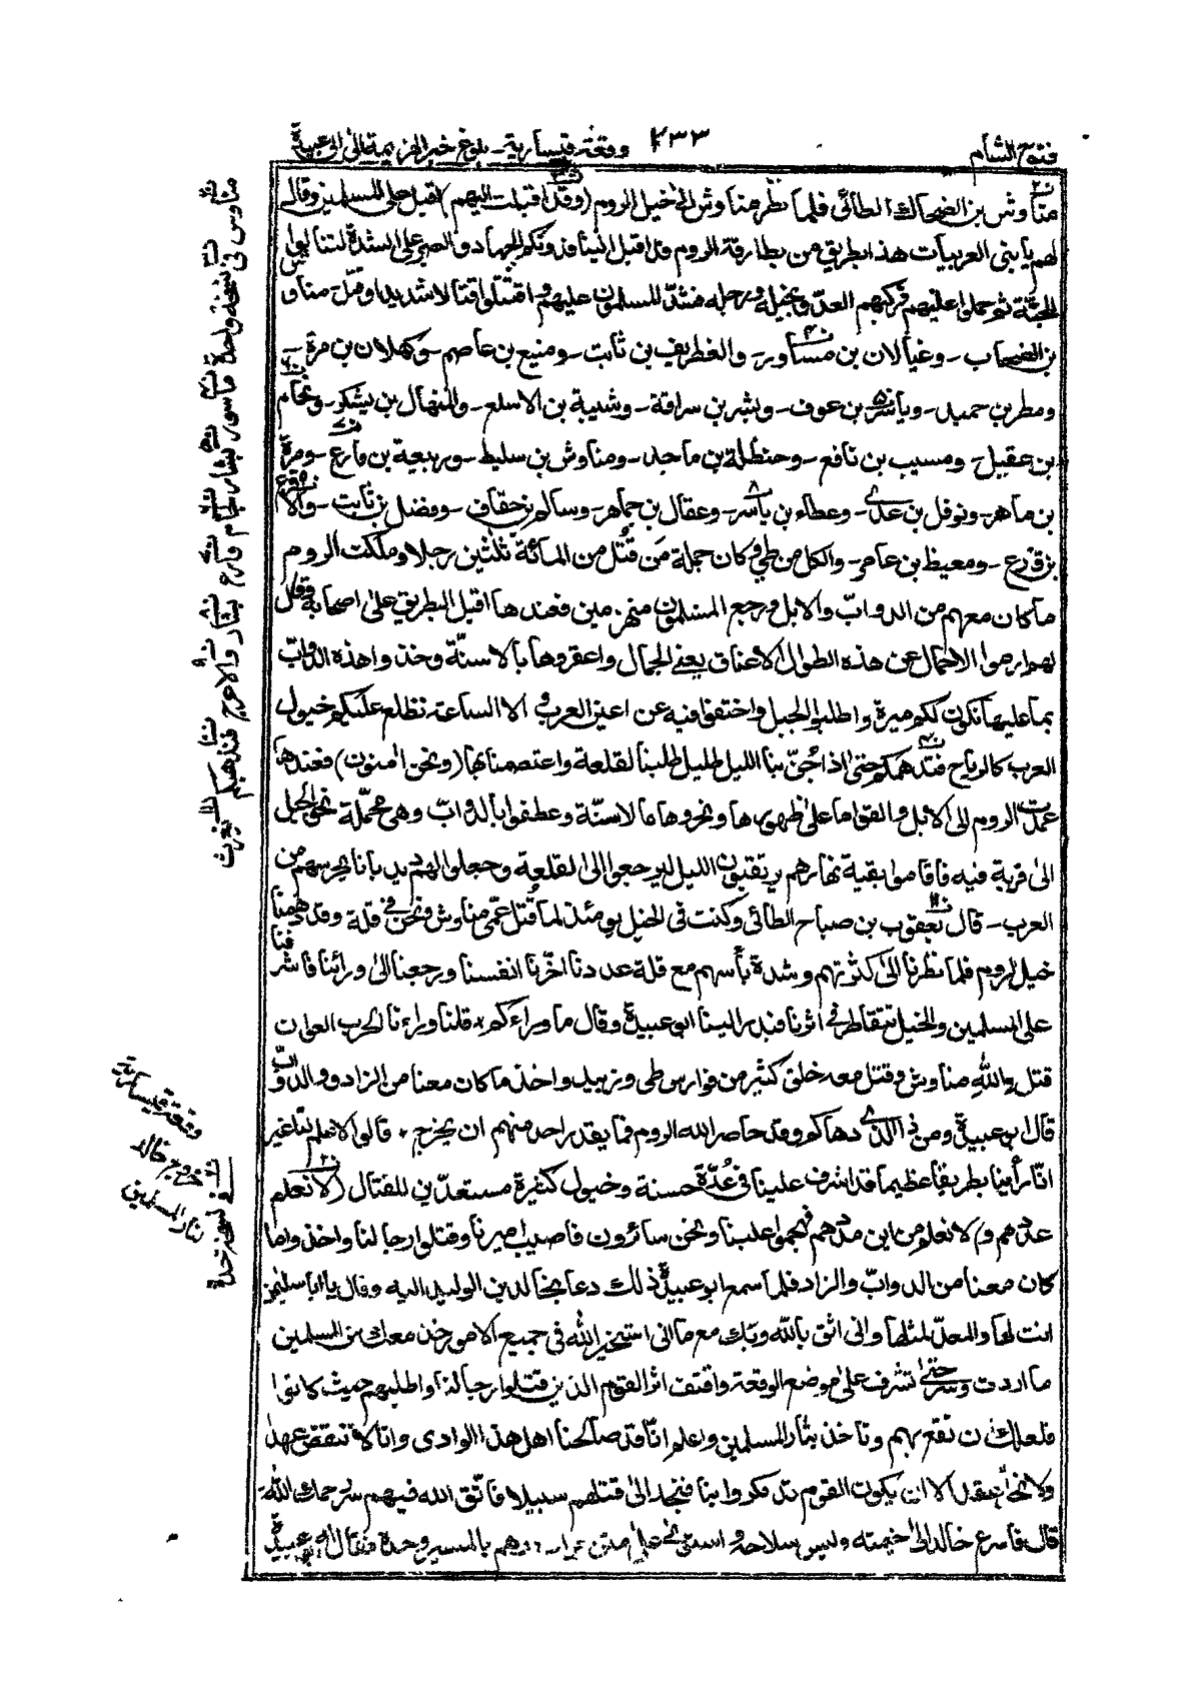 فتوح الشام ٤٣٣ وقعة قيسارية - بلوغ خبر الهزيمة الى ابى عبيدة
مناوش بن الضحاك الطائى فلما نظر مناوش الى خيل الروم (وقد اقبلت اليهم) اقبل على المسلمين وقال
لهم يا بنى العربيات هذا بطريق من بطارقة الروم قد اقبل الينا فدونكم الجهاد والصبر على الشدة لتنالوا
الجنة ثم حملوا عليهم فركبهم العدو بخيله ورجله فشد المسلمون عليهم واقتتلوا قتالا شديدا وقتل مناوش
بن الضحاك - وغيالان بن مساور - والغطريف بن ثابت - ومنيع بن عاصم - وكهلان بن مرة -
ومطر بن حميد - وياسر بن عوف - وبشر بن سراقة - وشيبة بن الاسلع - والمنهال بن يشكر - ونجام
بن عقيل - ومسيب بن نافع - وحنظلة بن ماجد - ومناوش بن سليط - وربيعة بن فارع - ومرة
بن ماهر - ونوفل بن عدى - وعطاء بن ياسر - وعقال بن جماهر - وسالم بن خفاف - وفضل بن ثابت - والاقرع
بن قارع - ومعيط بن عامر - والكل من طى وكان جملة من قُتل من المائة ثلثين رجلا وملكت الروم
ما كان معهم من الدوابّ والابل ورجع المسلمون منهزمين فعندها اقبل البطريق على اصحابه وقال
لهم ارموا الاحمال عن هذه الطوال الاعناق يعنى الجمال واعقروها بالاسنّة وخذوا هذه الدوابّ
بما عليها تكون لكم ميرة واطلبوا الجبل واختفوا فيه عن اعين العرب و الا الساعة تطلع عليكم خيول
العرب كالرياح فتدهمكم حتى اذا جُنّ بنا الليل طلبنا القلعة واعتصمنا بها (ونحن امنون) فعندها
عمدت الروم الى الابل والقوا ما على ظهورها ونحروها بالاسنّة وعطفوا بالدوابّ وهى محمّلة نحو الجبل
الى قرية فيه فاقاموا بقية نهارهم يرتقبون الليل ليرجعوا الى القلعة وجعلوا لهم ديدبانا يحرسهم من
العرب - قال يعقوب بن صباح الطائى وكنت فى الخيل يومئذ لما قُتل عمّى مناوش ونحن فى قلة وقد دهمتنا
خيل الروم فلما نظرنا الى كثرتهم وشدة بأسهم مع قلة عددنا اخّرنا انفسنا ورجعنا الى ورائنا فاشرفنا
على المسلمين والخيل تتقاطر فى اثرنا فبدر الينا ابو عبيدة وقال ما وراءكم * قلنا وراءنا الحرب العوان
قتل والله مناوش وقتل معه خلق كثير من فوارس طى وزبيد واخذ ما كان معنا من الزاد والدوابّ
قال ابو عبيدة ومن ذا الذى دهاكم وقد حاصر الله الروم فما يقدر احد منهم ان يخرج * قالوا لا علم لنا غير
انّا رأينا بطريقا عظيما قد اشرف علينا فى عُدّة حسنة وخيول كثيرة مستعدّين للقتال (لا نعلم
عددهم و) لا نعلم من اين مددهم فهجموا علينا ونحن سائرون فاصيب اميرنا وقتلوا رجالنا واخذوا ما
كان معنا من الدوابّ والزاد فلما سمع ابو عبيدة ذلك دعا بخالد بن الوليد اليه وقال يا ابا سليمن
انت لها والمعدّ لمثلها وانى اثق بالله وبك مع ما انى استخير الله فى جميع الامور خذ معك من المسلمين
ما اردت وسر حتى تشرف على موضع الوقعة واقتف اثر القوم الذين قتلوا رجالنا واطلبهم حيث كانوا
فلعلك ان تقع بهم وتاخذ بثار المسلمين واعلم انّا قد صالحنا اهل هذا الوادى وانا لا ننقض عهدا
ولا نخل عقدا الا ان يكون القوم قد مكروا بنا فنجد الى قتلهم سبيلا فاتّق الله فيهم سر رحمك الله -
قال فاسرع خالد الى خيمته ولبس سلاحه واستوى على متن جواده وهم بالمسير وحده فقال له ابو عبيدة
مناوس فى نسخة واحدة
وقعة قيسارية
خروج خالد
بثار المسلمين
فى نسخة